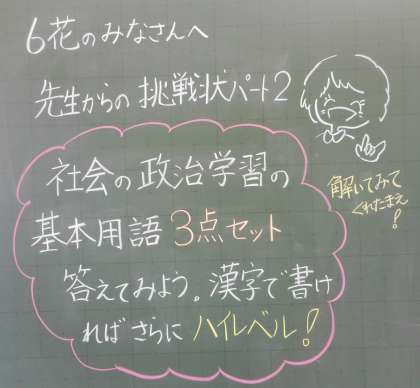 6花のみなさんへ
先生からの挑戦状パート2
社会の政治学習の
基本用語3点セット
答えてみよう。漢字で書け
ればさらにハイレベル!
解いてみて
くれたまえ!